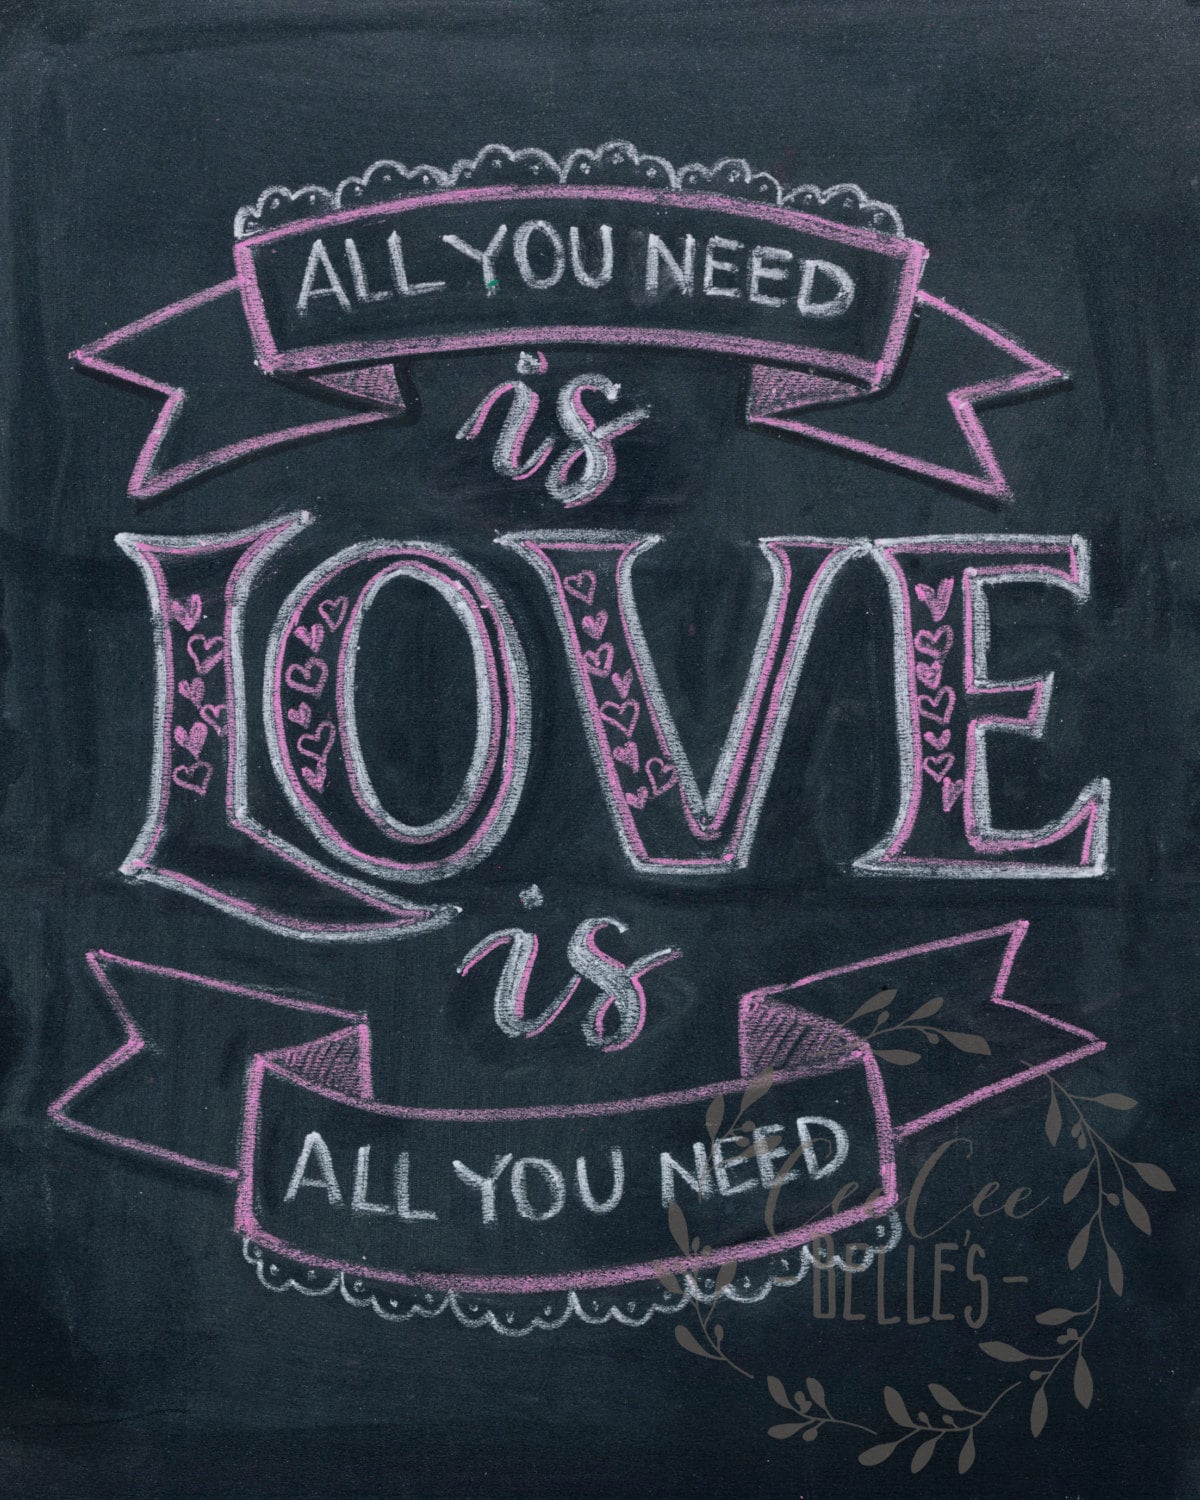 ALL YOU NEED
is
LOVE
is
ALL YOU NEED
CeeCee
BELLE'S